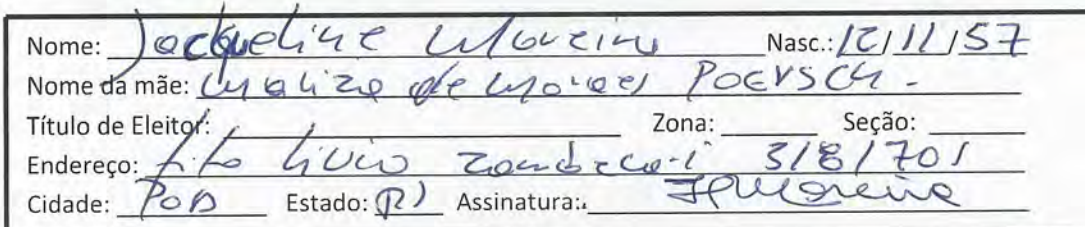 Nome: Jacqueline Moreira Nasc.: 12/11/57
Nome da mãe: Marliza de Moraes POERSCH -
Título de Eleitor: Zona: Seção:
Endereço: Tito Livio Zambecari 318/701
Cidade: POA Estado: RS Assinatura:. JPMoreira